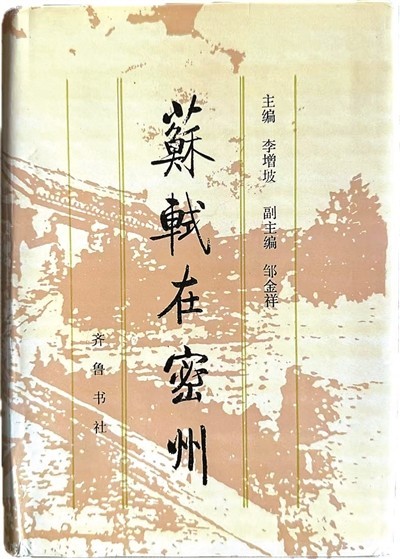 主编 李增坡 副主编 邹金祥
蘇軾在密州
齐鲁书社